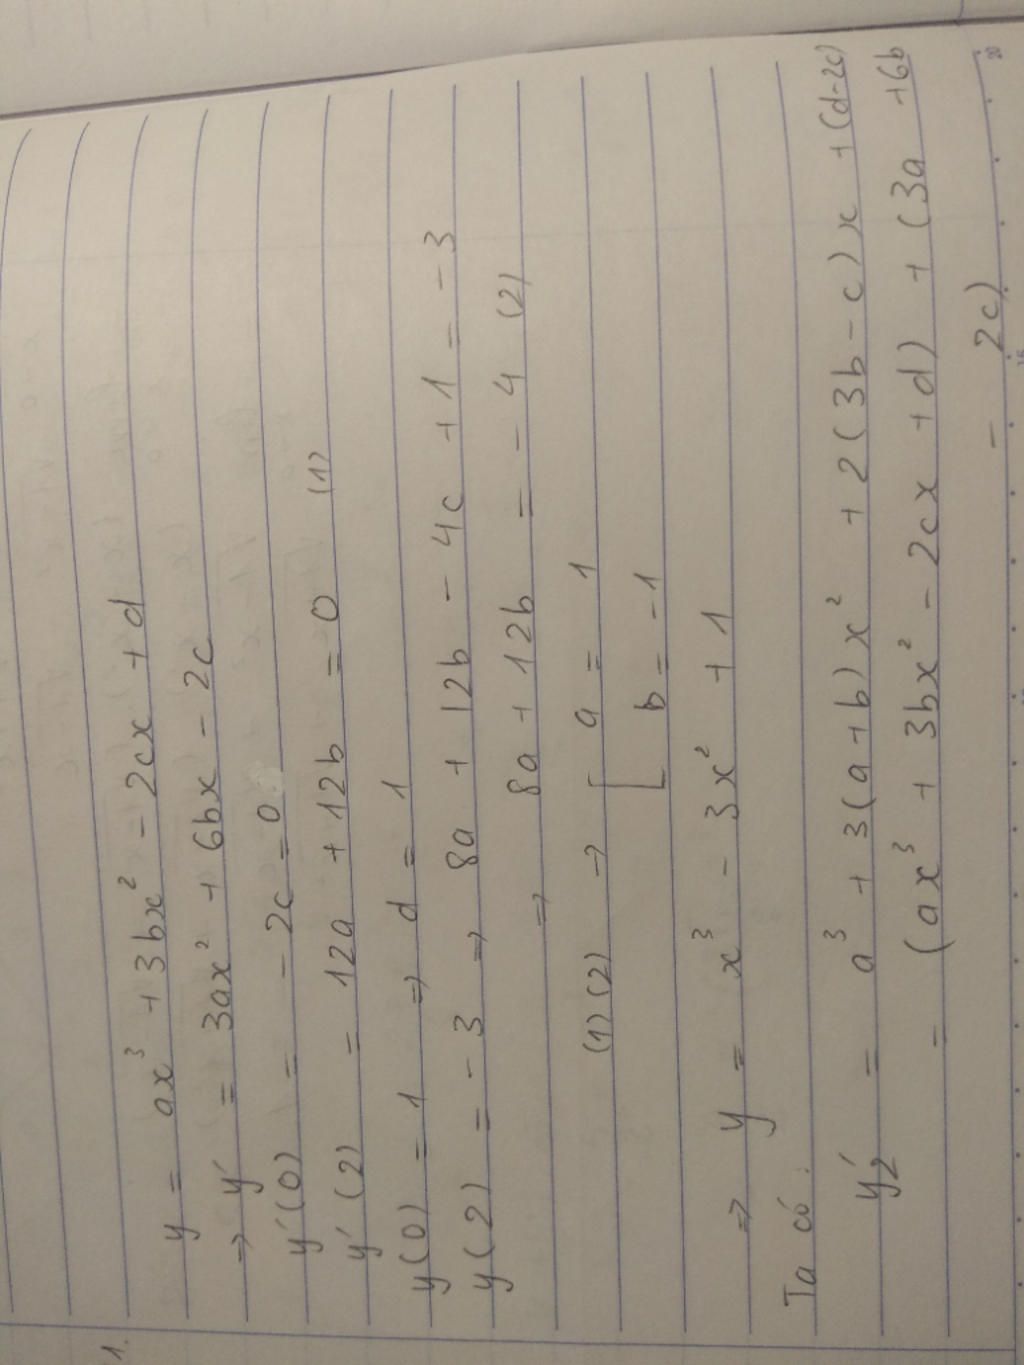 1.
y = ax³ + 3bx² - 2cx + d
⇒ y' = 3ax² + 6bx - 2c
y'(0) = - 2c = 0
y'(2) = 12a + 12b = 0 (1)
y(0) = 1 ⇒ d = 1
y(2) = - 3 ⇒ 8a + 12b - 4c + 1 = - 3
⇒ 8a + 12b = - 4 (2)
(1)(2) → [ a = 1
b = -1
⇒ y = x³ - 3x² + 1
Ta có:
y₂' = a³ + 3(a+b)x² + 2(3b - c)x + (d-2c)
- (ax³ + 3bx² - 2cx + d) + (3a + 6b
- 2c)